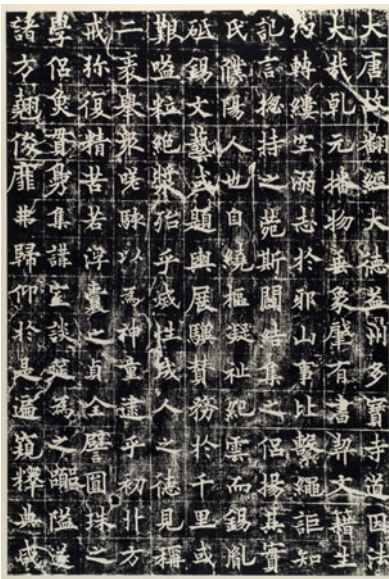 大唐故翻經大德益州多寶寺道因法
大哉乾元播物垂象肇有書契文藉生
乃轉縷空溺志於邪山事比繫繩詎知
記言揔持之菀斯闢結集之侶揚其實
氏濮陽人也自繞樞凝祉紀雲而錫胤
砥錫文藝式題輿展驥贊務於千里或
艱嗌粒絕漿殆乎滅性成人之德見稱
二袠舉衆嗟駭以為神童逮乎初丱方
戒弥復精苦若浮囊之貞全譬圓珠之
學侶魚貫鳧集講室談筵為之嚻隘遂
諸方翹俊靡弗歸仰於是遍窺釋典咸